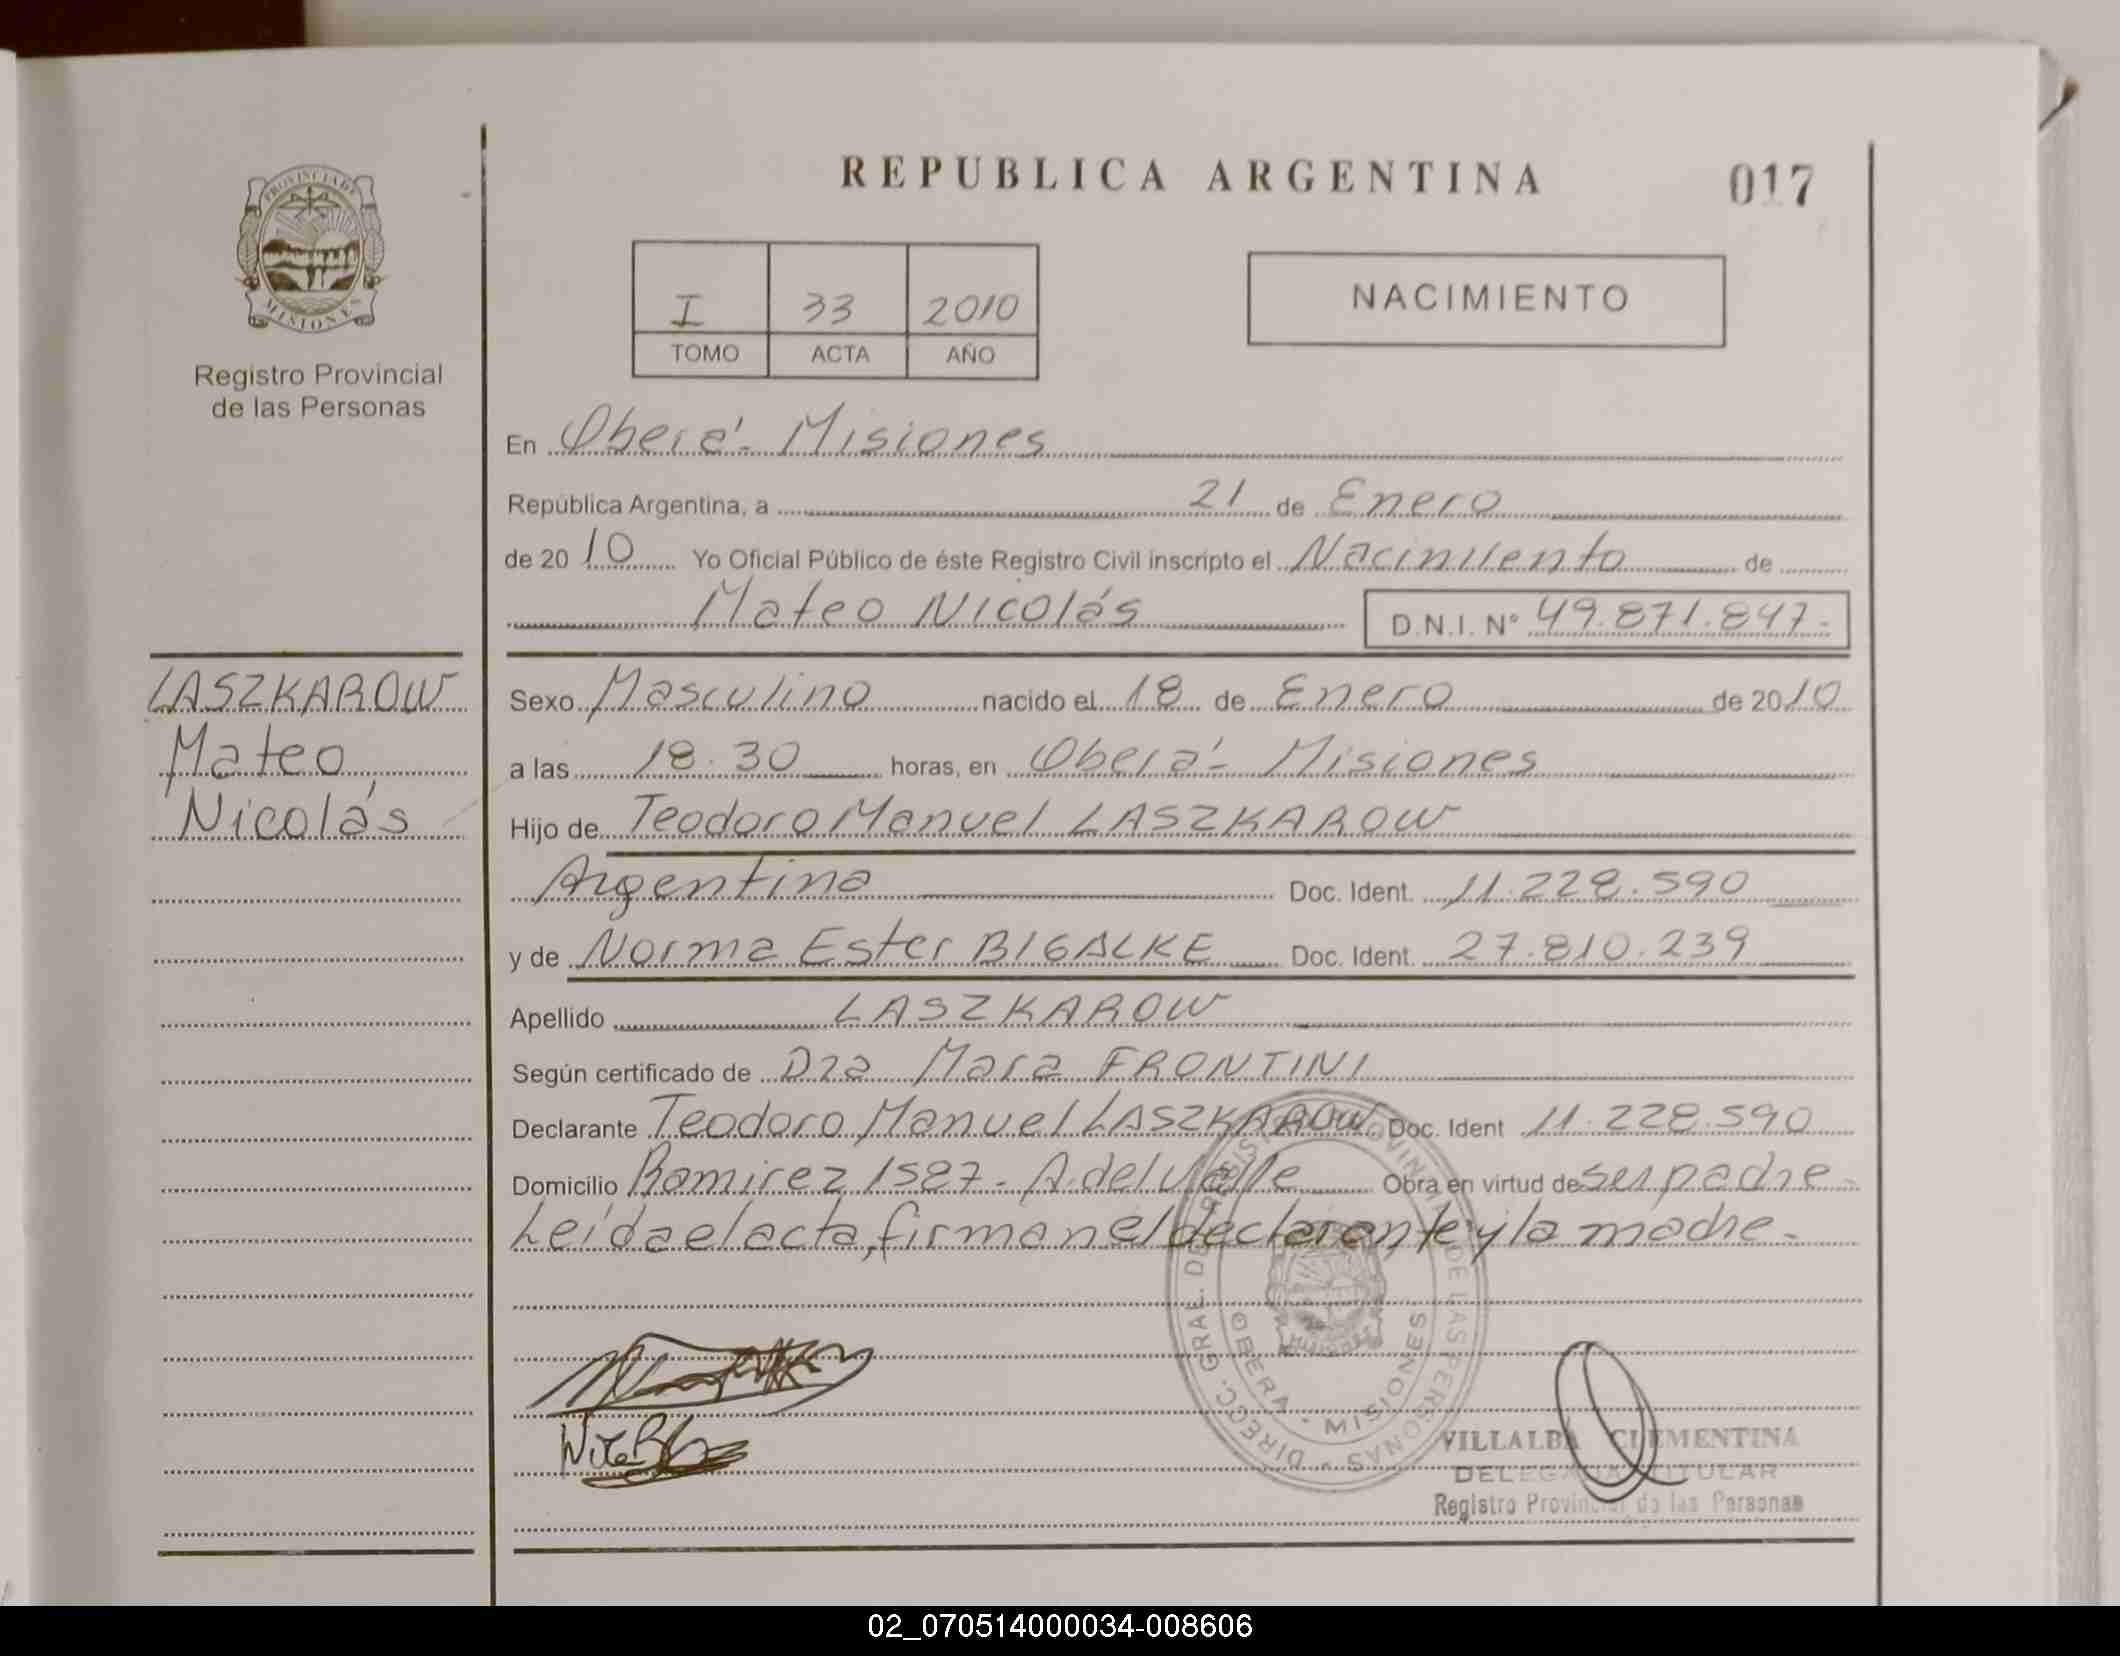 REPUBLICA ARGENTINA
017
PROVINCIA DE
MISIONES
Registro Provincial
de las Personas
I 33 2010
TOMO ACTA AÑO
NACIMIENTO
En Oberá - Misiones
República Argentina, a 21 de Enero
de 2010 Yo Oficial Público de éste Registro Civil inscripto el Nacimiento de
Mateo Nicolás D.N.I. N° 49.871.847.-
LASZKAROW
Mateo,
Nicolás
Sexo Masculino nacido el 18 de Enero de 2010
a las 18.30 horas, en Oberá - Misiones
Hijo de Teodoro Manuel LASZKAROW
Argentina Doc. Ident. 11.228.590
y de Norma Ester BIGALKE Doc. Ident. 27.810.239
Apellido LASZKAROW
Según certificado de Dra Mara FRONTINI
Declarante Teodoro Manuel LASZKAROW Doc. Ident 11.228.590
Domicilio Ramirez 1527 - A. del Valle Obra en virtud de ser padre -
Leída el acta, firman el declarante y la madre -
DIRECC. GRAL. DE REGISTRO PROVINCIAL DE LAS PERSONAS
OBERA - MISIONES
VILLALBA CLEMENTINA
DELEGADA TITULAR
Registro Provincial de las Personas
02_070514000034-008606